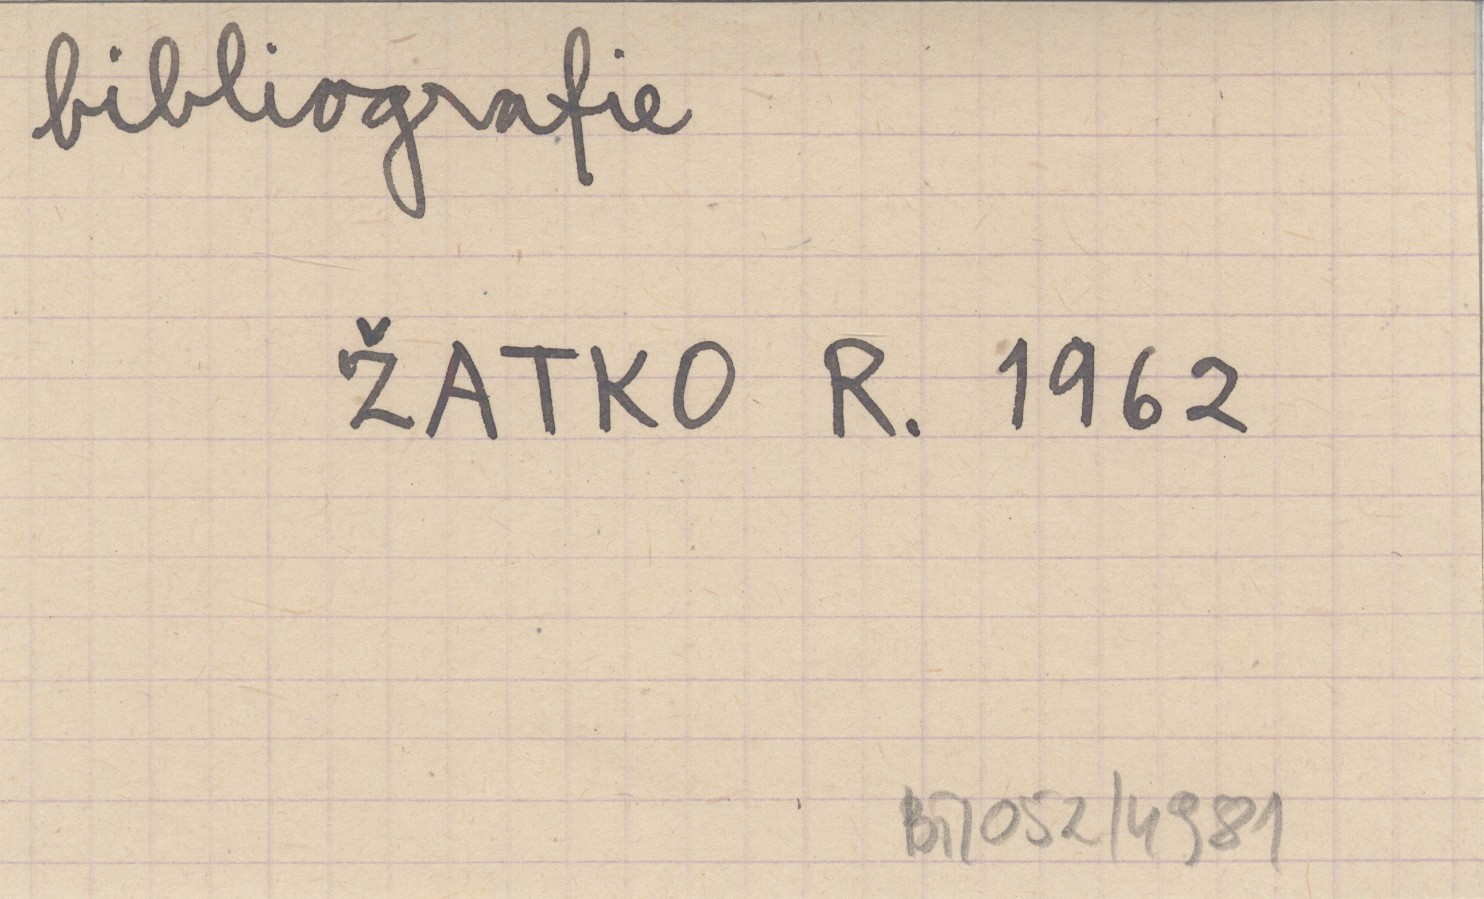 bibliografie
ŽATKO R. 1962
BI/052/4981